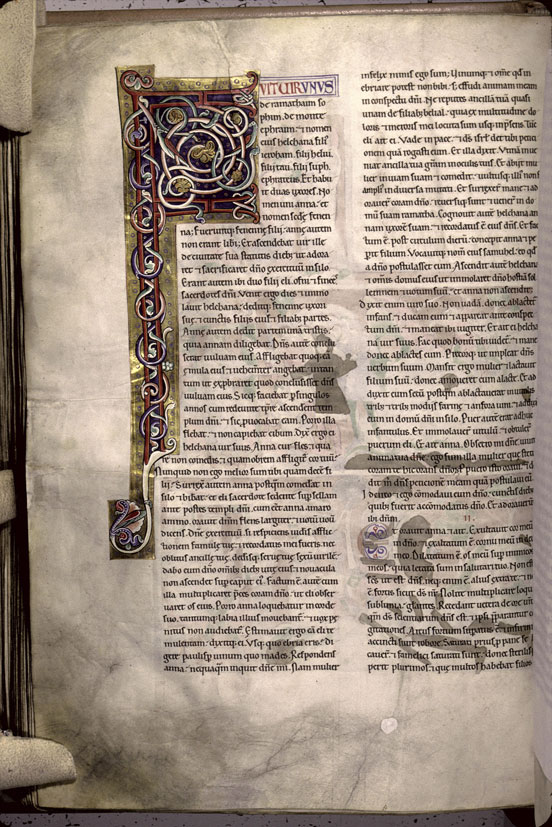 FVIT UIR UNUS
de ramathaim so
phim. de monte
ephraim. & nomen
eius helchana filius
ieroboam. filij heliu.
filij tau. filij suph.
ephrateus. Et habu
it duas uxores. No
men uni anna. et
nomen sc̄de fenen
na. Fueruntq; fenenne filij. anne autem
non erant libi. Et ascendebat uir ille
de ciuitate sua statutis dieb; ut adora
ret & sacrificaret dn̄o exercituum in silo.
Erant autem ibi duo filij eli. ofni & finees
sacerdotes dn̄i. Venit ergo dies & immo
lauit helchana. deditq; fenenne uxori
sue. & cunctis filiis eius & filiab; partes.
Anne autem dedit partem unā tristis.
quia annam diligebat. Dn̄s autē conclu
serat uuluam eius. Affligebat quoq; eā
emula eius & uehementer angebat. intan
tum ut exprobraret quod conclusisset dn̄s
uuluam eius. Sicq; faciebat p singulos
annos cum redeunte tp̄re ascenderent tem
plum dn̄i. & sic puocabat eam. Porro illa
flebat. & non capiebat cibum. Dix̄ ergo ei
helchana uir suus. Anna cur fles. & qua
re non comedis. & quamobrem affligit̄ cor tuū.
Nunquid non ego melior sum tibi quam decē fi
lij. Surrex̄ autem anna postqm̄ comedit in
silo & bibit. & eli sacerdote sedente sup sellam
ante postes templi dn̄i. cum eēt anna amaro
animo. orauit dn̄m flens largiter. & uotū uouit
dicens. Dn̄e exercituū si respiciens uideris afflic
tionem famule tue. & recordatus mei fueris. nec
oblitus ancille tue. dederisq; serue tue sexū uirilē.
dabo eum dn̄o omnib; dieb; uite eius. & nouacula
non ascendet sup caput ei. Factum ē autē cum
illa multiplicaret p̄ces coram dn̄o. ut eli obser
uaret os eius. Porro anna loquebatur in corde
suo. tantumq; labia illius mouebant̄. & uox pe
nitus non audiebat̄. Estimauit ergo eā eli te
mulentam. dixitq; ei. Vsq; quo ebria eris. di
gere paulisp uinum quo mades. Respondens
anna. nequaqm̄ inquit dn̄e mi. nam mulier
infelix nimis ego sum. Uinumq; & om̄e qd̄ in
ebriare potest non bibi. S; effudi animam meam
in conspectu dn̄i. Ne reputes ancillā tuā quasi
unam de filiab; belial. quia ex multitudine do
loris & meroris mei locuta sum usq; in p̄sens. Tūc
eli ait ei. Vade in pace. & ds̄ isrl̄ det tibi petici
onem quā rogasti eum. Et illa dixit. Vtinā inue
niat ancilla tua grām in oculis tuis. Et abijt mu
lier in uiam suam & comedit. uultusq; illi non st̄
amplius in diuersa mutati. Et surrexer̄ mane & ad
orauer̄ coram dn̄o. reuersiq; sunt & uener̄ in do
mū suam ramatha. Cognouit autē helchana an
nam uxorē suam. & recordatus ē eius dn̄s. Et fac
tum ē. post circulum dierū. concepit anna & pe
pit filium. Vocauitq; nomen eius samuhel. eo qd̄
a dn̄o postulasset eum. Ascendit autē helchana
& omis domus eius ut immolaret dn̄o hostiā sol
lemnem. & uotum suū. & anna non ascendit.
Dixit enim uiro suo. Non uadā. donec ablactet̄
infans. & ducam eum & appareat ante conspec
tum dn̄i. & maneat ibi iugiter. Et ait ei helcha
na uir suus. Fac quod bonū tibi uidet̄. & mane
donec ablactes eum. Precorq; ut impleat dn̄s
uerbum suum. Mansit ergo mulier & lactauit
filium suū. donec amoueret eum a lacte. Et ad
dixit eum secū postqm̄ ablactauerat in uitulis
trib; & trib; modijs farine. & anfora uini. & adduxit
eum in domū dn̄i in silo. Puer autē erat adhuc
infantulus. Et immolauer̄ uitulū. & obtuler̄
puerum eli. Et ait anna. Obsecro mi dn̄e. uiuit
anima tua dn̄e. ego sum illa mulier que steti
coram te hic orans dn̄m. P puero isto oraui. & de
dit m̄ dn̄s peticionē meam quā postulaui eū.
Idcirco & ego comodaui eum dn̄o. cunctis dieb;
quib; fuerit accomodatus dn̄o. Et adorauer̄
ibi dn̄m. II.
Et orauit anna & ait. Exultauit cor meū
in dn̄o. & exaltatum ē cornu meū in do
meo. Dilatatum ē os meū sup inimicos
meos. quia letata sum in salutari tuo. Non est
scs̄ ut est dn̄s. neq; enim ē alius extra te. & non
ē fortis sicut ds̄ nr̄. Nolite multiplicare loqui
sublimia gl̄antes. Recedant uetera de ore ur̄o.
qm̄ ds̄ scientiarum dn̄s est. & ipsi p̄parantur co
gitationes. Arcus fortium supatus ē. & infirmi
accincti sunt robore. Saturati prius p pane se lo
cauer̄. & famelici saturati sunt. donec sterilis
peperit plurimos. & que multos habebat filios